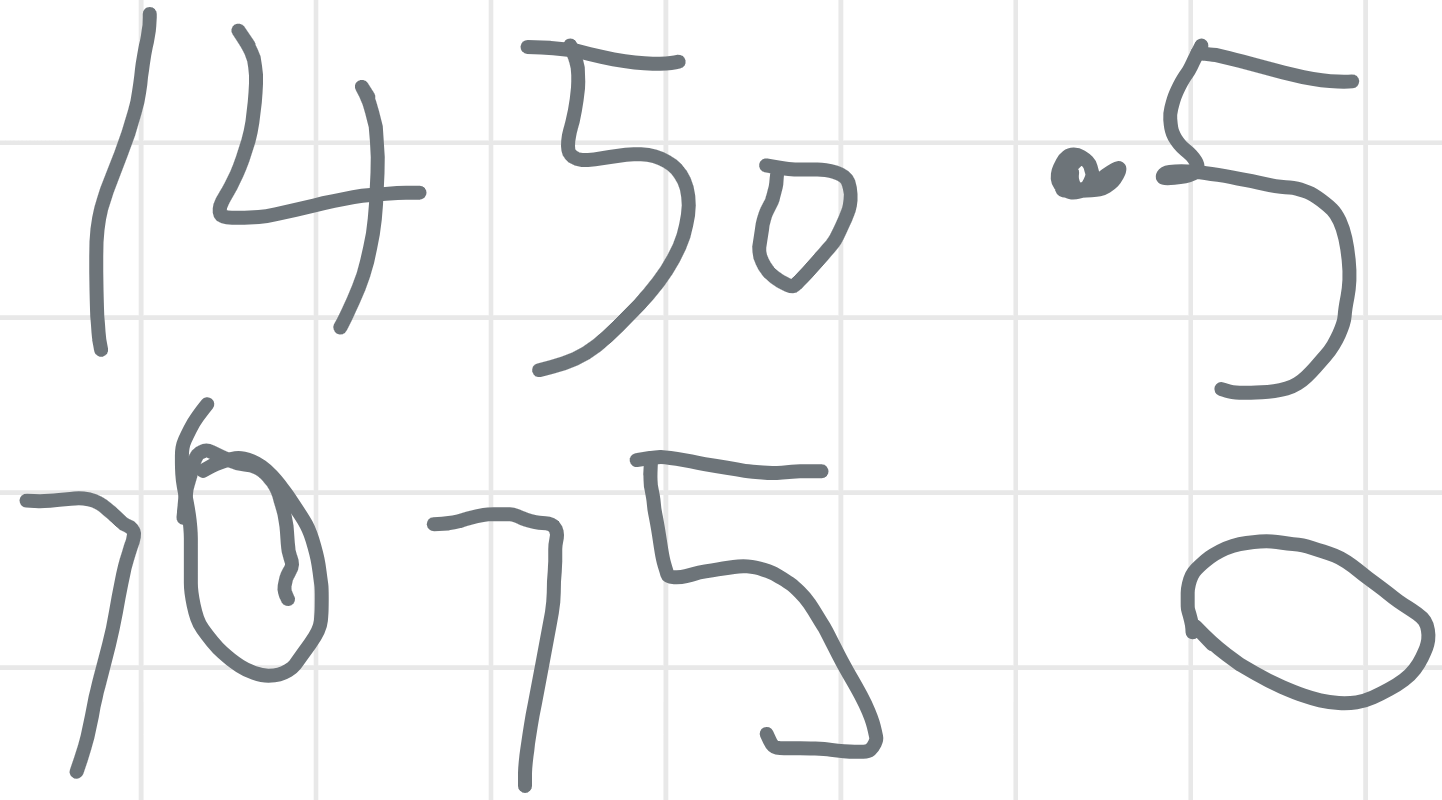 1450 .5
7075 0